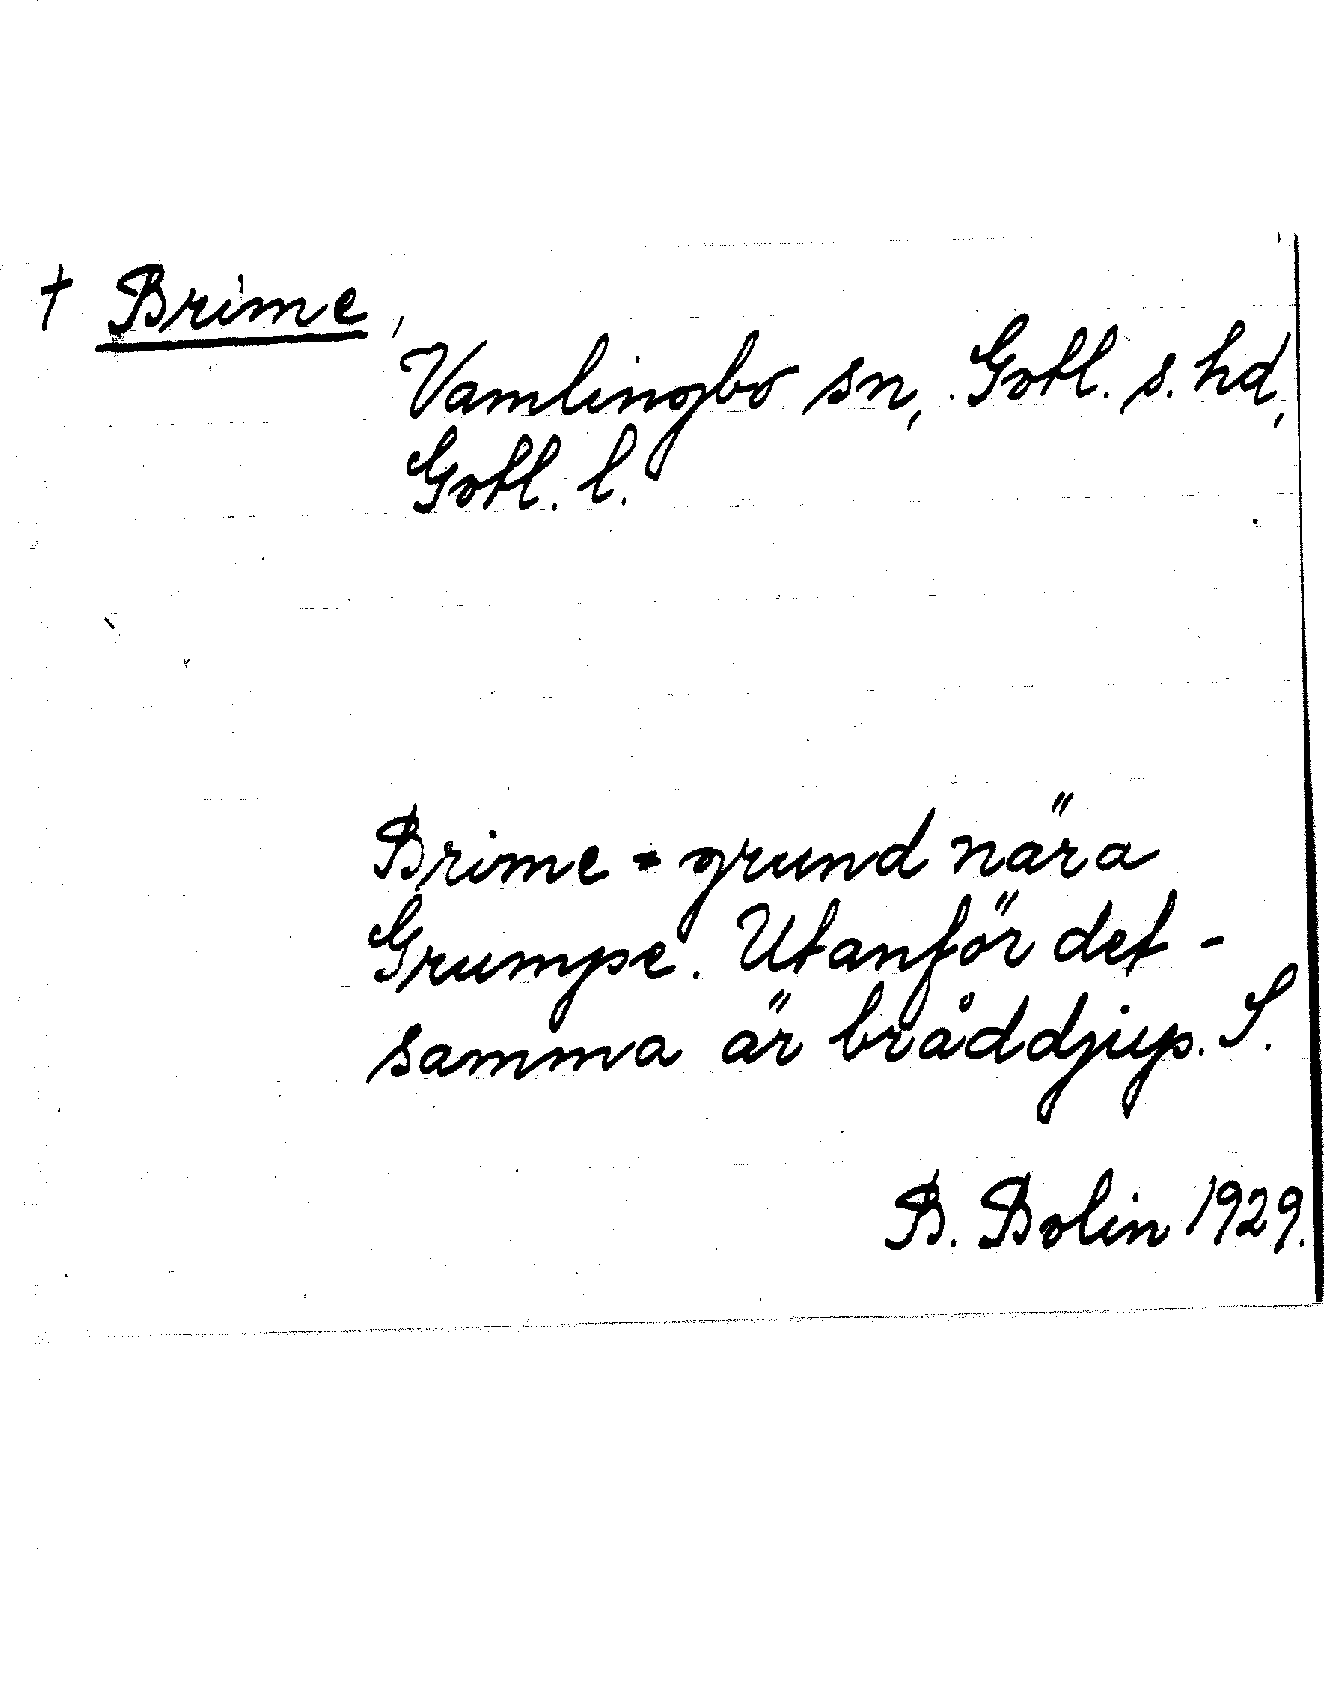 † Brime,
Vamlingbo sn, Gotl. s. hd,
Gotl. l.
Brime = grund nära
Grumpe. Utanför det-
samma är bråddjup. S.
B. Bolin 1929.